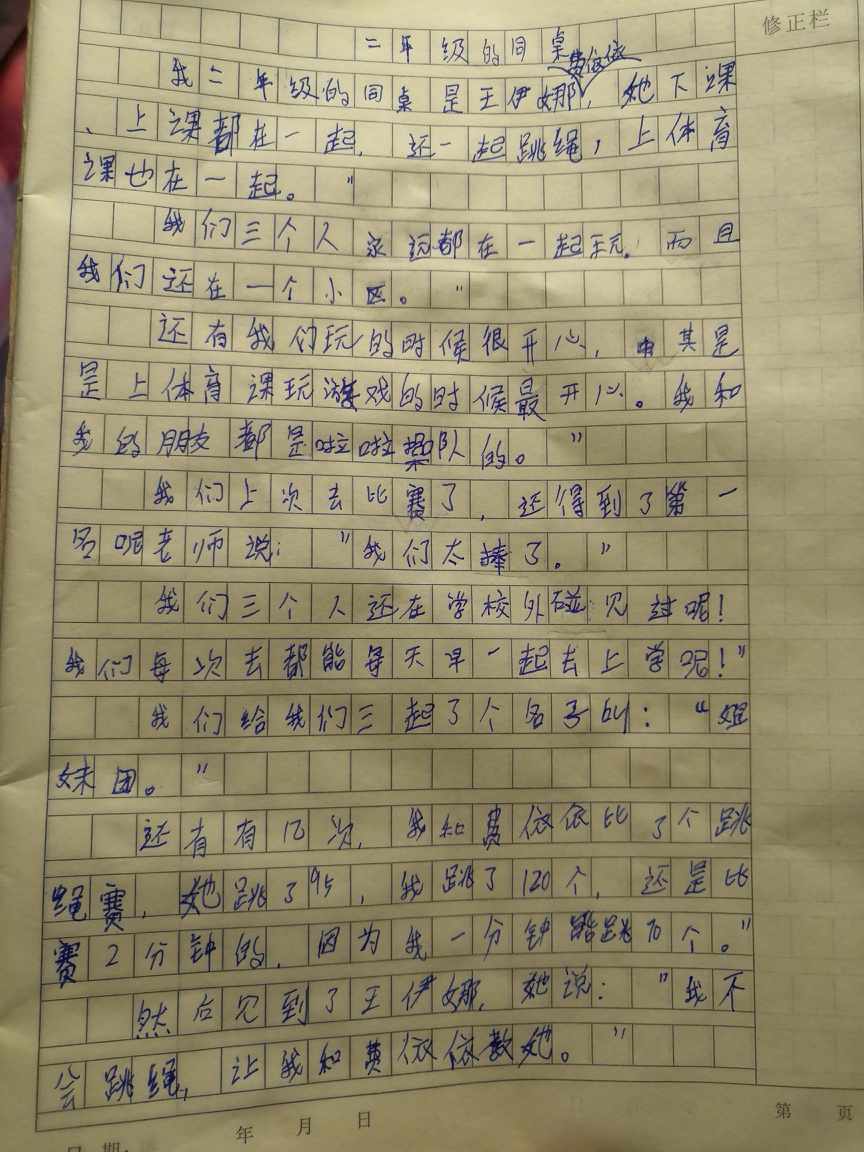 修正栏
二年级的同桌
费依依
我二年级的同桌是王伊娜,她下课
、上课都在一起,还一起跳绳,上体育
课也在一起。"
我们三个人永远都在一起玩,而且
我们还在一个小区。"
还有我们玩的时候很开心,其是
是上体育课玩游戏的时候最开心。我和
我的朋友都是啦啦操队的。"
我们上次去比赛了,还得到了第一
名呢老师说:"我们太棒了。"
我们三个人还在学校外碰见过呢!
我们每次去都能每天早一起去上学呢!"
我们给我们三起了个名子叫:"姐
妹团。"
还有有几次,我和费依依比了个跳
绳赛,她跳了95,我跳了120个,还是比
赛2分钟的,因为我一分钟能跳70个。"
然后见到了王伊娜,她说:"我不
会跳绳,让我和费依依教她。"
年 月 日
第 页
日期: